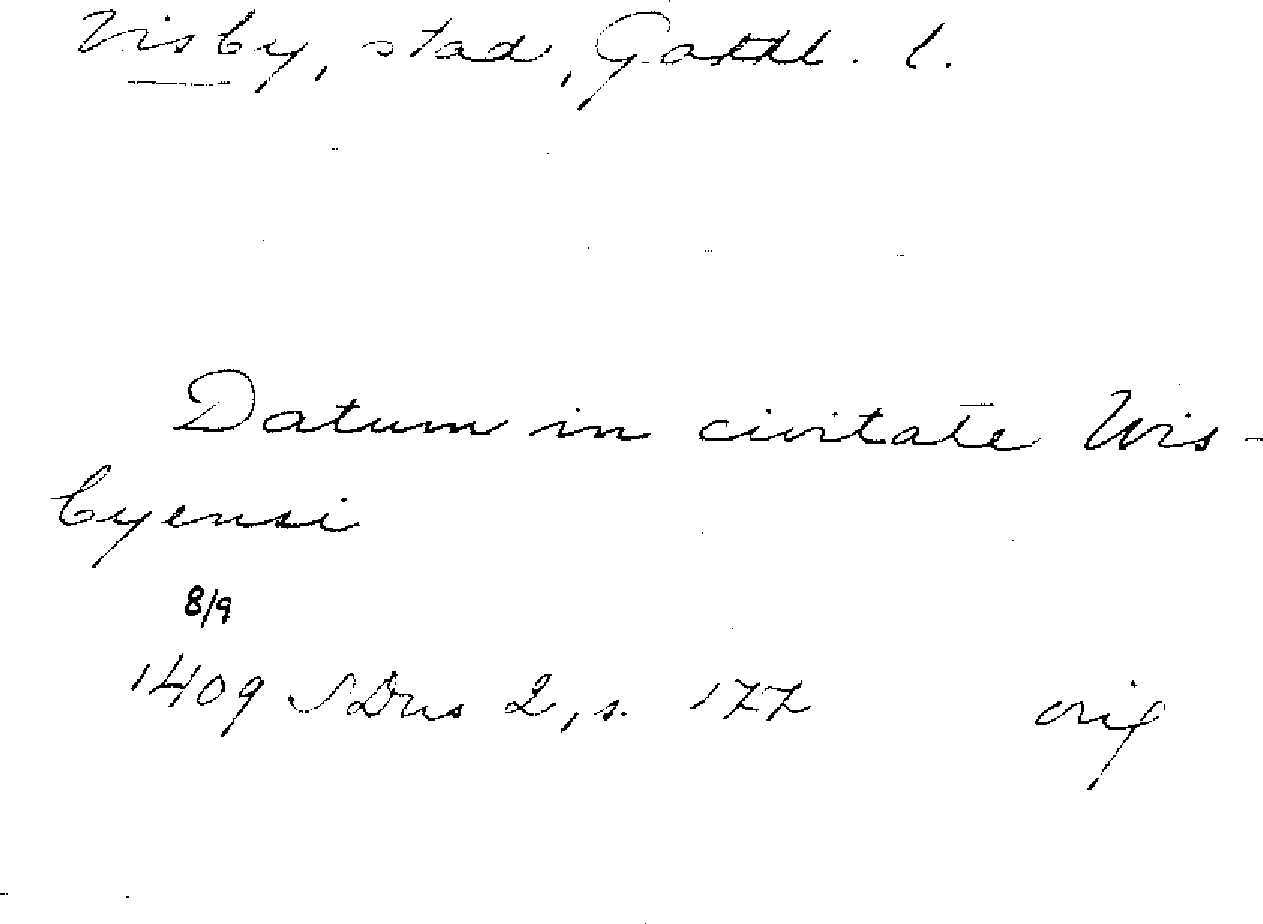 Visby, stad, Gottl. l.
Datum in civitate Wis-
byensi
8/9
1409 SDns 2, s. 177 orig